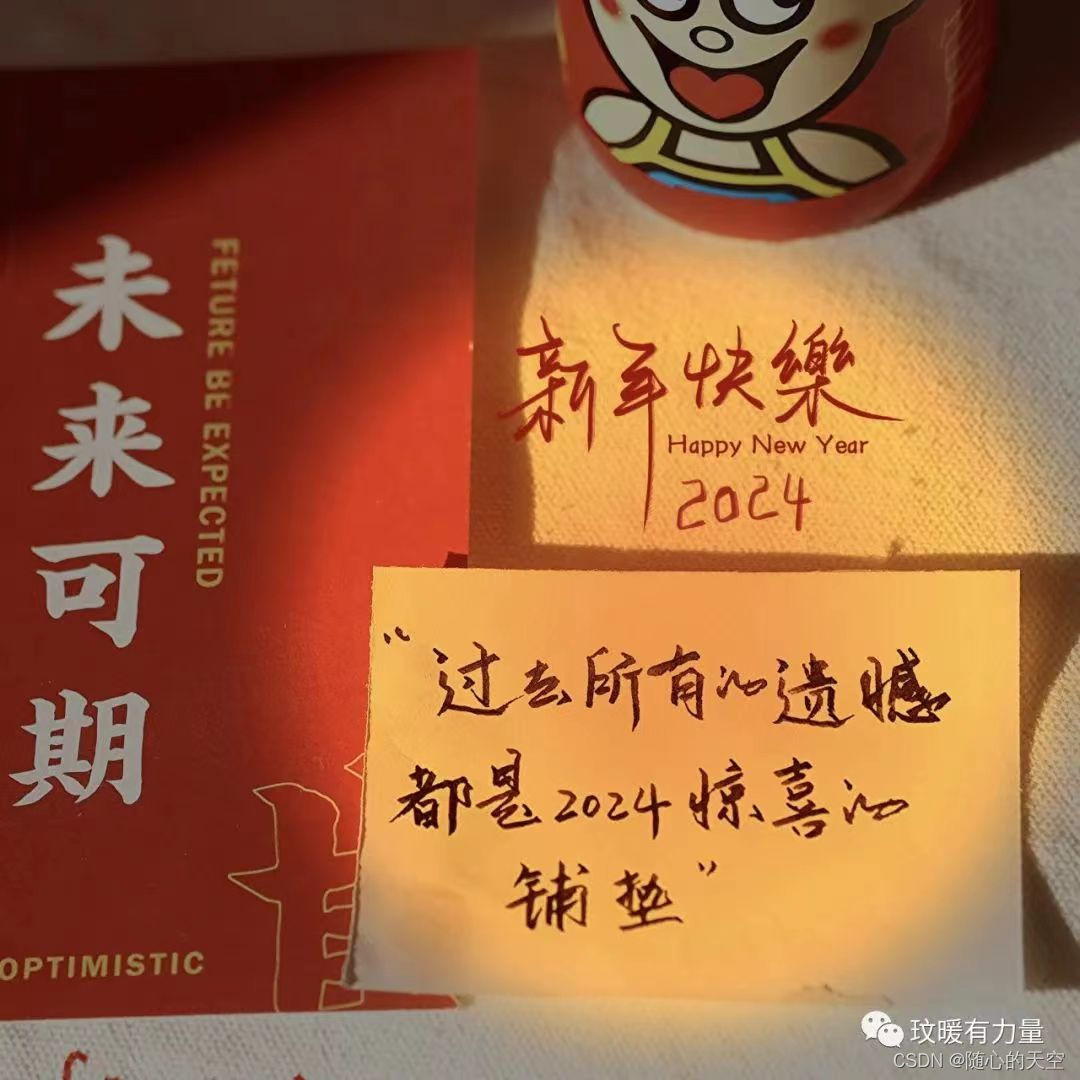 未来可期
FETURE BE EXPECTED
OPTIMISTIC
新年快樂
Happy New Year
2024
“过去所有的遗憾
都是2024惊喜的
铺垫”
玟暖有力量
CSDN @随心的天空